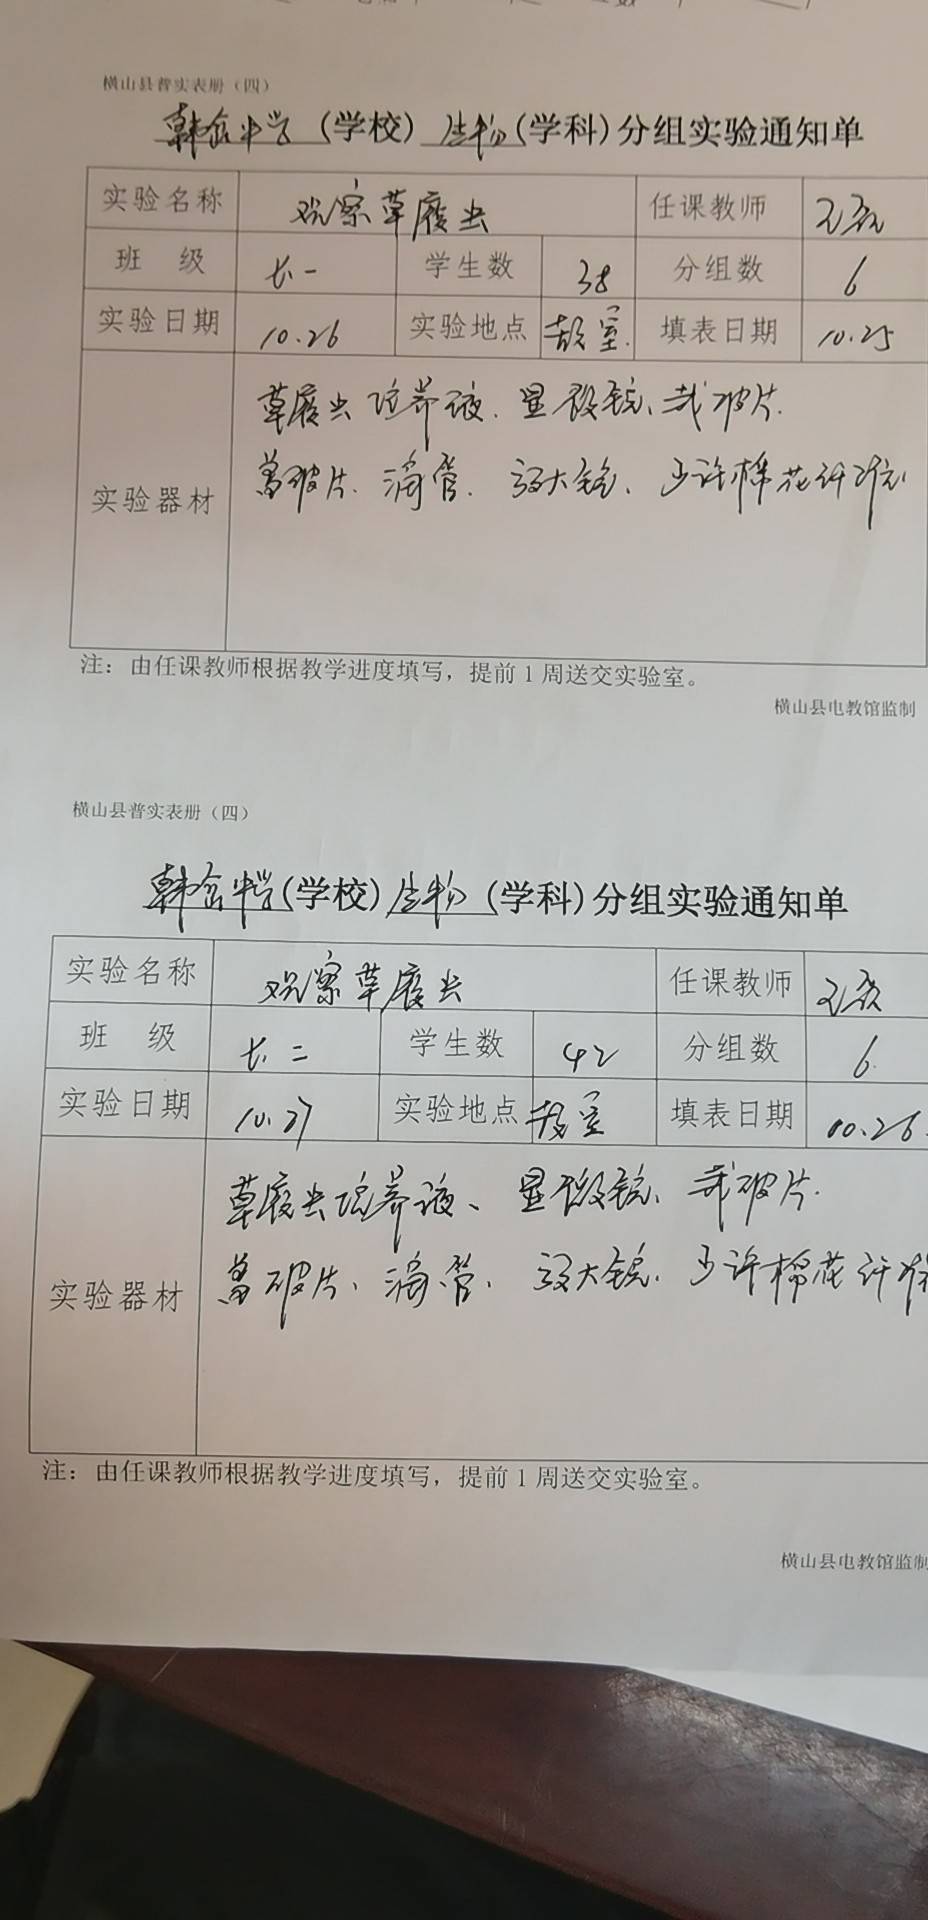 横山县普实表册（四）
韩岔中学（学校）生物（学科）分组实验通知单
实验名称 观察草履虫 任课教师
班 级 七.一 学生数 38 分组数 6
实验日期 10.26 实验地点 教室. 填表日期 10.25
草履虫培养液. 显微镜、载玻片.
实验器材
盖玻片. 滴管. 放大镜、少许棉花纤维
注：由任课教师根据教学进度填写，提前1周送交实验室。
横山县电教馆监制
横山县普实表册（四）
韩岔中学（学校）生物（学科）分组实验通知单
实验名称 观察草履虫 任课教师
班 级 七.二 学生数 42 分组数 6.
实验日期 10.27 实验地点 教室 填表日期 10.26.
草履虫培养液、显微镜、载玻片.
实验器材
盖玻片、滴管. 放大镜. 少许棉花纤维
注：由任课教师根据教学进度填写，提前1周送交实验室。
横山县电教馆监制